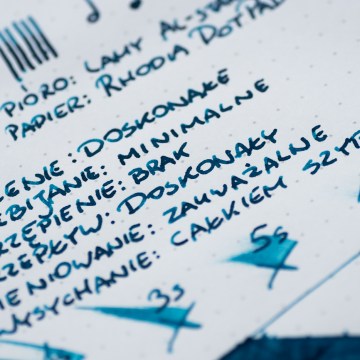 PIÓRO: LAMY AL-
PAPIER: RHODIA DOTPAD
CENIE: DOSKONAŁE
EBIJANIE: MINIMALNE
RZĘPIENIE: BRAK
ZEPŁYW: DOSKONAŁY
IENIOWANIE: ZAUWAŻALNE
WYSYCHANIE: CAŁKIEM SZYB
3s
5s